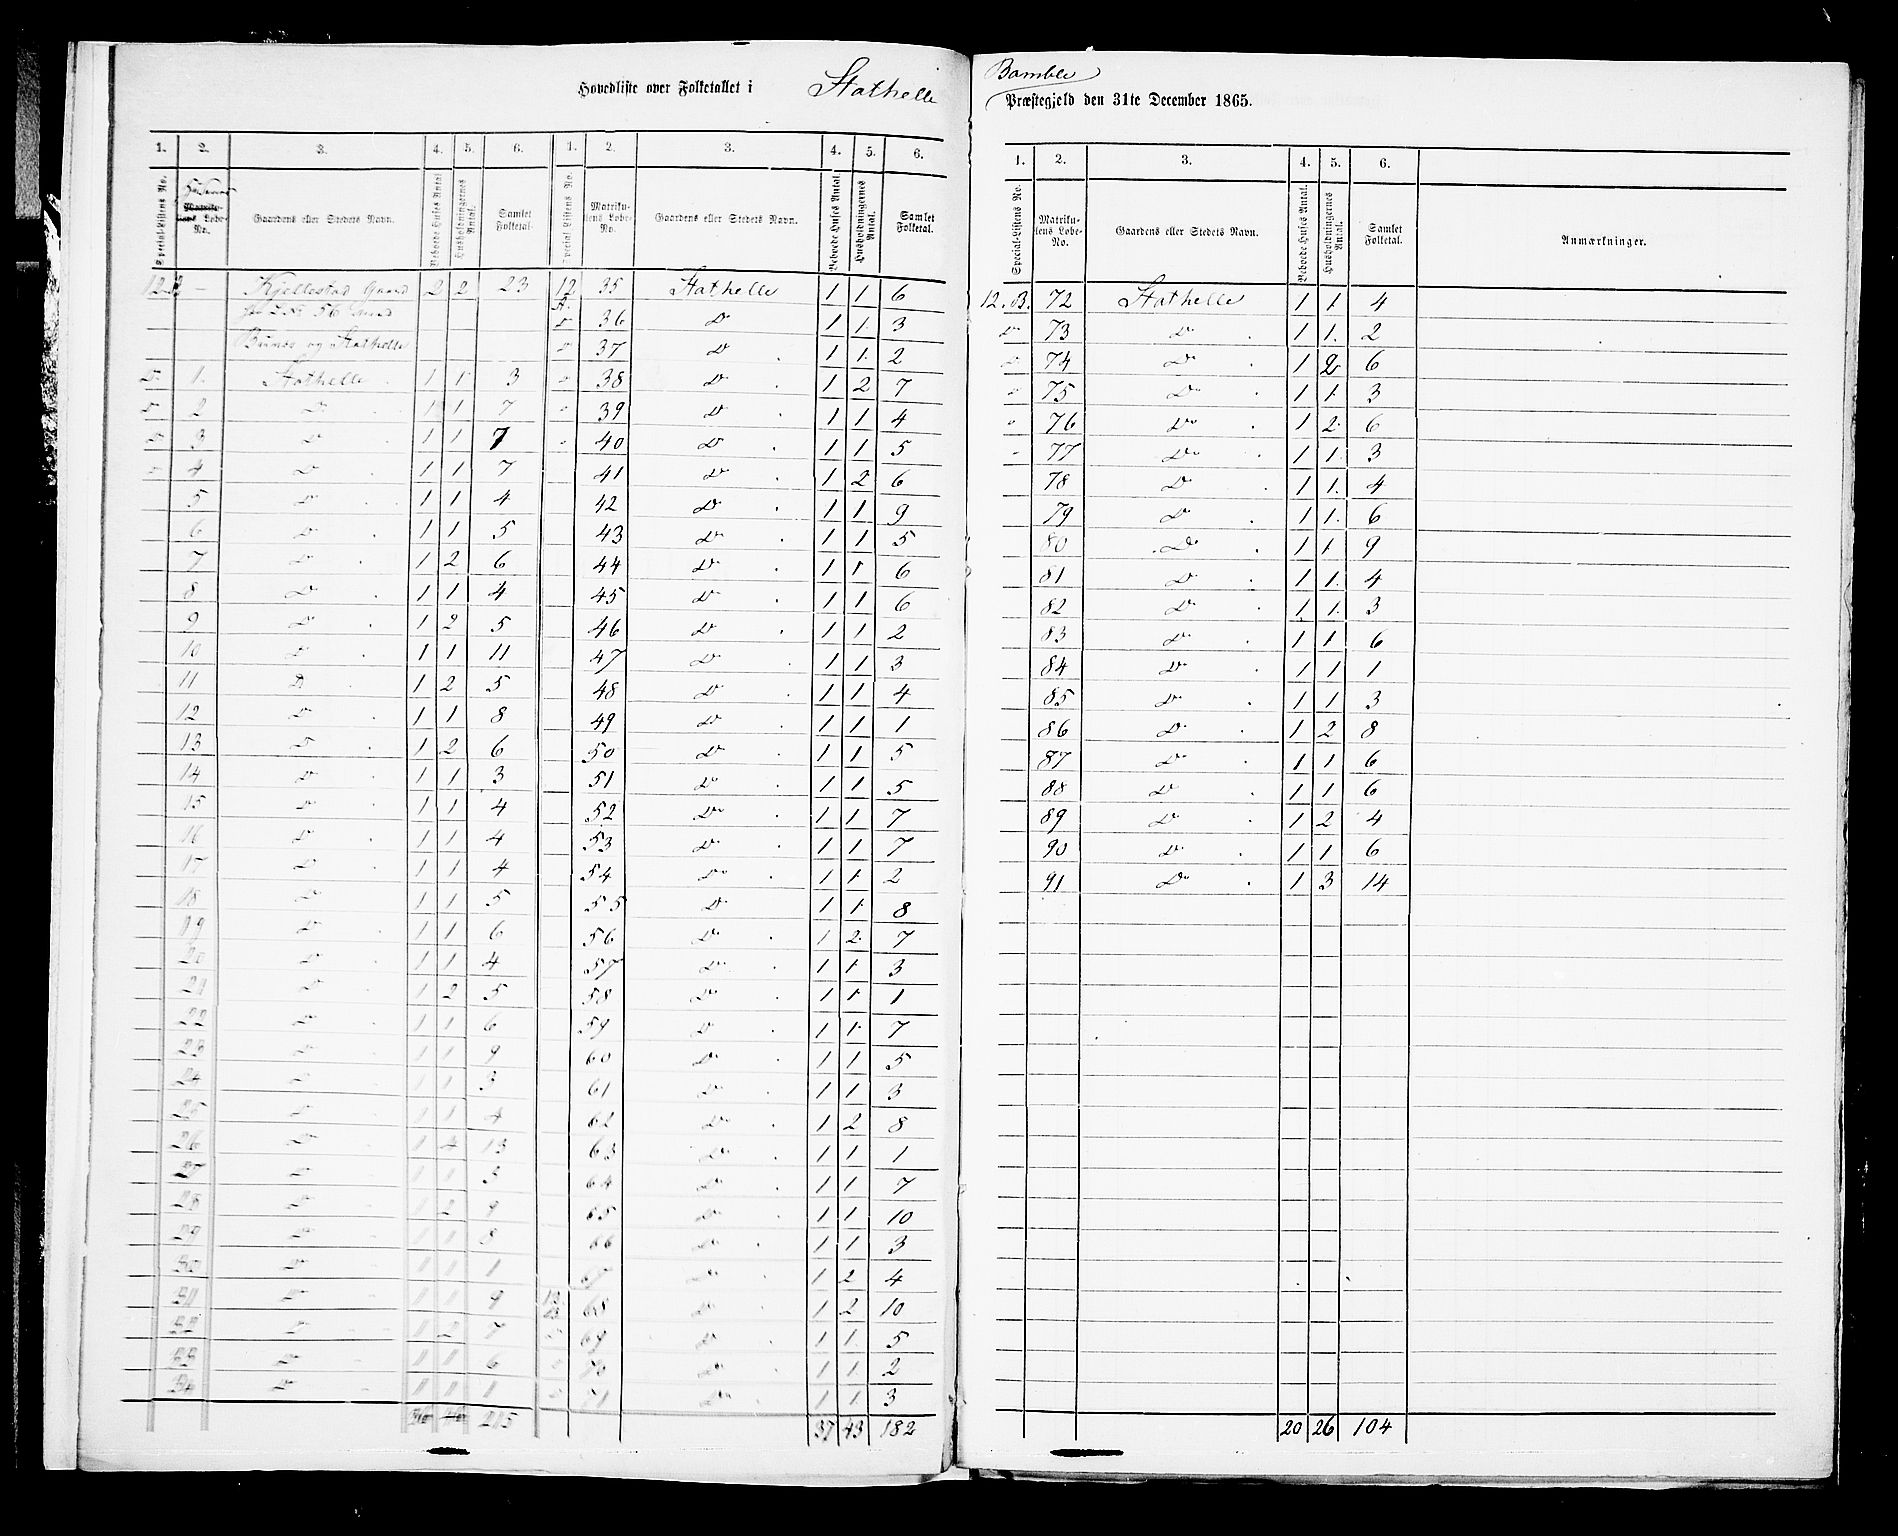 Hovedliste over Folketallet i Stathelle
1. 2. 3. 4. 5. 6. 1. 2. 3. 4. 5. 6.
Special-Listens No. Husenes Matrikulens Løbe-No. Gaardens eller Stedets Navn. Beboede Huses Antal Husholdningernes Antal. Samlet Folketal. Special-Listens No. Matrikulens Løbe-No. Gaardens eller Stedets Navn. Beboede Huses Antal. Husholdningernes Antal. Samlet Folketal.
12 – Kjellestad Gaard 2 2 23 12 35 Stathelle 1 1 6
L. No 56 med 36 Do 1 1 3
og Stathelle 37 Do 1 1 2
Do 1. Stathelle 1 1 3 38 Do 1 2 7
2 Do 1 1 7 39 Do 1 1 4
3 Do 1 1 7 40 Do 1 1 5
4 Do 1 1 7 41 Do 1 2 6
5 Do 1 1 4 42 Do 1 1 9
6 Do 1 1 5 43 Do 1 1 5
7 Do 1 2 6 44 Do 1 1 6
8 Do 1 1 4 45 Do 1 1 6
9 Do 1 2 5 46 Do 1 1 2
10 Do 1 1 11 47 Do 1 1 3
11 Do 1 2 5 48 Do 1 1 4
12 Do 1 1 8 49 Do 1 1 1
13 Do 1 2 6 50 Do 1 1 5
14 Do 1 1 3 51 Do 1 1 5
15 Do 1 1 4 52 Do 1 1 7
16 Do 1 1 4 53 Do 1 1 7
17 Do 1 1 4 54 Do 1 1 2
18 Do 1 1 5 55 Do 1 1 8
19 Do 1 1 6 56 Do 1 2 7
20 Do 1 1 4 57 Do 1 1 3
21 Do 1 2 5 58 Do 1 1 1
22 Do 1 1 6 59 Do 1 1 7
23 Do 1 1 9 60 Do 1 1 5
24 Do 1 1 3 61 Do 1 1 3
25 Do 1 1 4 62 Do 1 2 8
26 Do 1 4 13 63 Do 1 1 1
27 Do 1 1 3 64 Do 1 1 7
28 Do 1 2 9 65 Do 1 1 10
29 Do 1 1 8 66 Do 1 1 3
30 Do 1 1 1 Do 1 2 4
31 Do 1 1 9 12 B 68 Do 1 2 10
32 Do 1 2 7 69 Do 1 1 5
33 Do 1 1 6 70 Do 1 1 2
34 Do 1 1 1 71 Do 1 1 3
36 215 37 43 182
Bamble
Præstegjeld den 31te December 1865.
1. 2. 3. 4. 5. 6.
Special-Listens No. Matrikulens Løbe-No. Gaardens eller Stedets Navn. Beboede Huses Antal. Husholdningernes Antal. Samlet Folketal. Anmærkninger.
12. B. 72 Stathelle 1 1 4
Do 73 Do 1 1 2
74 Do 1 2 6
75 Do 1 1 3
76 Do 1 2 6
77 Do 1 1 3
78 Do 1 1 4
79 Do 1 1 6
80 Do 1 1 9
81 Do 1 1 4
82 Do 1 1 3
83 Do 1 1 6
84 Do 1 1 1
85 Do 1 1 3
86 Do 1 2 8
87 Do 1 1 6
88 Do 1 1 6
89 Do 1 2 4
90 Do 1 1 6
91 Do 1 3 14
20 26 104